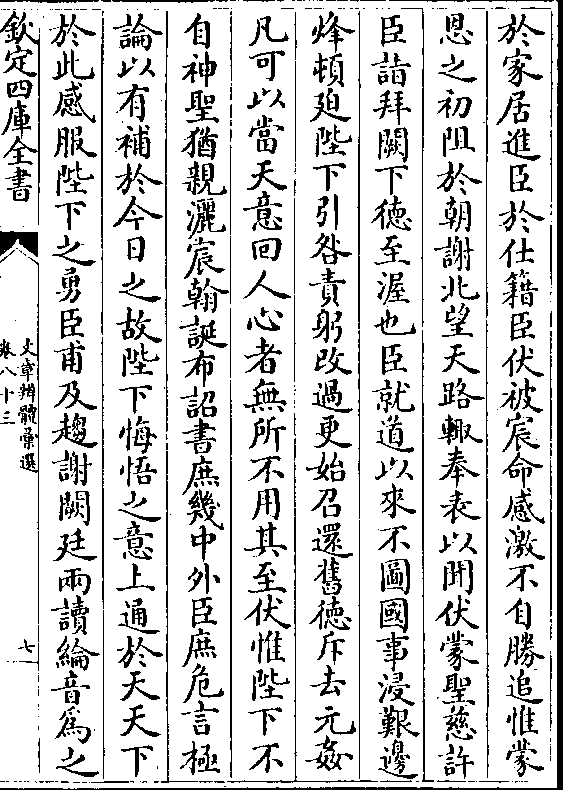 於家居進臣於仕籍臣伏被宸命感激不自勝追惟蒙
恩之初阻於朝謝北望天路輙奉表以聞伏蒙聖慈許
臣詣拜闕下徳至渥也臣就道以來不圖國事浸艱邊
烽頓廹陛下引咎責躬改過更始召還舊徳斥去元姦
凡可以當天意回人心者無所不用其至伏惟陛下不
自神聖猶親灑宸翰誕布詔書庶幾中外臣庶危言極
論以有補於今日之故陛下悔悟之意上通於天天下
於此感服陛下之勇臣甫及趨謝闕廷兩讀綸音為之
欽定四庫全書
文章辨體彚選
卷八十三
七